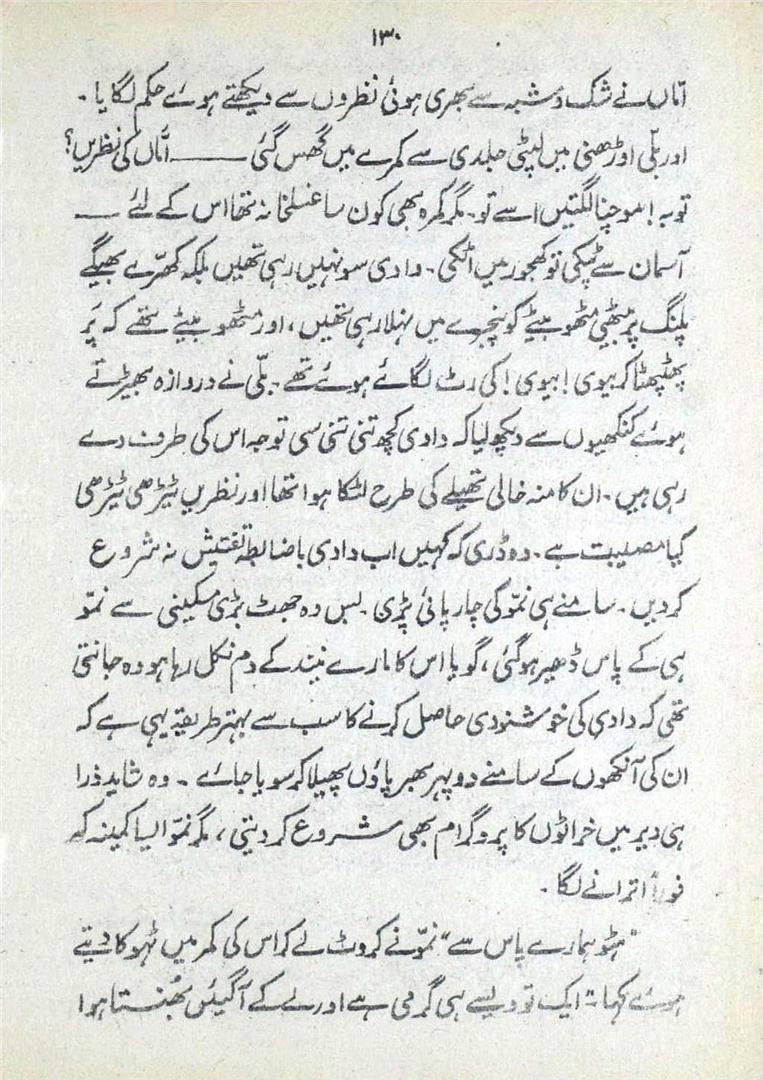 ۱۳۰
اماں نے شک و شبہ سے بھری ہوئی نظروں سے دیکھتے ہوئے حکم لگایا۔
اور بلّی اوڑھنی میں لپٹی جلدی سے کمرے میں گھس گئی ——— اماں کی نظریں؟
توبہ! موچنا لگتیں اسے تو۔ مگر کمرہ بھی کون سا غسلخانہ تھا اس کے لئے ——
آسمان سے ٹپکی تو کھجور میں اٹکی۔ دادی سو نہیں رہی تھیں بلکہ کھرّے بھیگے
پلنگ پر بیٹھی مٹھو بیٹے کو پنجرے میں نہلا رہی تھیں، اور مٹھو بیٹے تھے کہ پَر
پھٹپھٹا کر بیوی! بیوی! کی رٹ لگائے ہوئے تھے۔ بلّی نے دروازہ بھیڑتے
ہوئے کنکھیوں سے دیکھ لیا کہ دادی کچھ تنی تنی سی توجہ اس کی طرف دے
رہی ہیں۔ ان کا منہ خالی تھیلے کی طرح لٹکا ہوا تھا اور نظریں ٹیڑھی ٹیڑھی
کیا مصیبت ہے۔ وہ ڈری کہ کہیں اب دادی باضابطہ تفتیش نہ شروع
کر دیں۔ سامنے ہی نمّو کی چارپائی پڑی۔ بس وہ جھٹ بڑی مسکینی سے نمّو
ہی کے پاس ڈھیر ہو گئی، گویا اس کا مارے نیند کے دم نکل رہا ہو وہ جانتی
تھی کہ دادی کی خوشنودی حاصل کرنے کا سب سے بہتر طریقہ یہی ہے کہ
ان کی آنکھوں کے سامنے دوپہر بھر پاؤں پھیلا کر سویا جائے۔ وہ شاید ذرا
ہی دیر میں خراٹوں کا پروگرام بھی شروع کر دیتی، مگر نمّو ایسا کمینہ کہ
فوراً اترانے لگا۔
"ہٹو ہمارے پاس سے" نمّو نے کروٹ لے کر اس کی کمر میں ٹہوکا دیتے
ہوئے کہا۔ "ایک تو ویسے ہی گرمی ہے اور لے کے آ گئیں بھُنستا ہوا